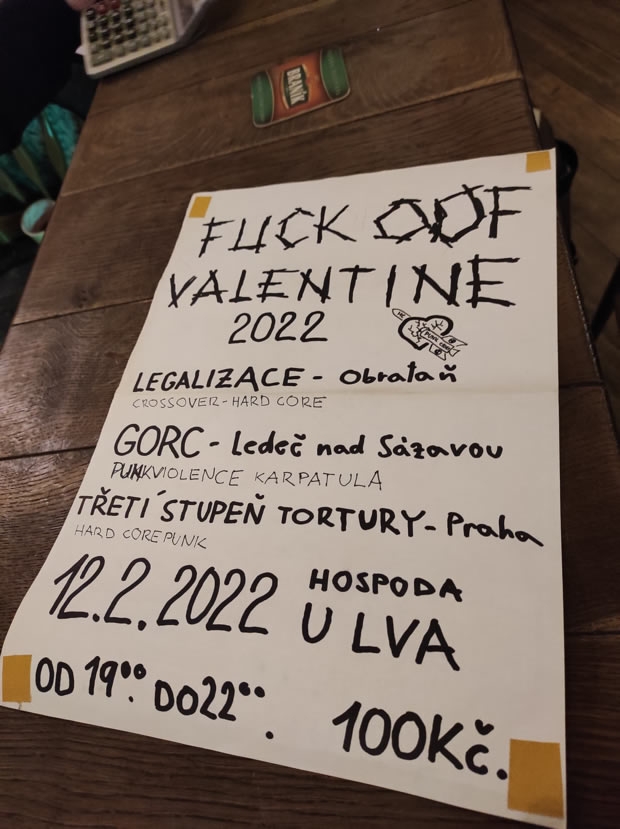 BRANÍK
FUCK OOF
VALENTINE
2022
PUNK
LEGALIZACE - Obrataň
CROSSOVER-HARD CORE
GORC - Ledeč nad Sázavou
PUNKVIOLENCE KARPATULA
TŘETÍ STUPEŇ TORTURY - Praha
HARD COREPUNK
12.2.2022 HOSPODA
U LVA
OD 19°°. DO 22°°.
100Kč.